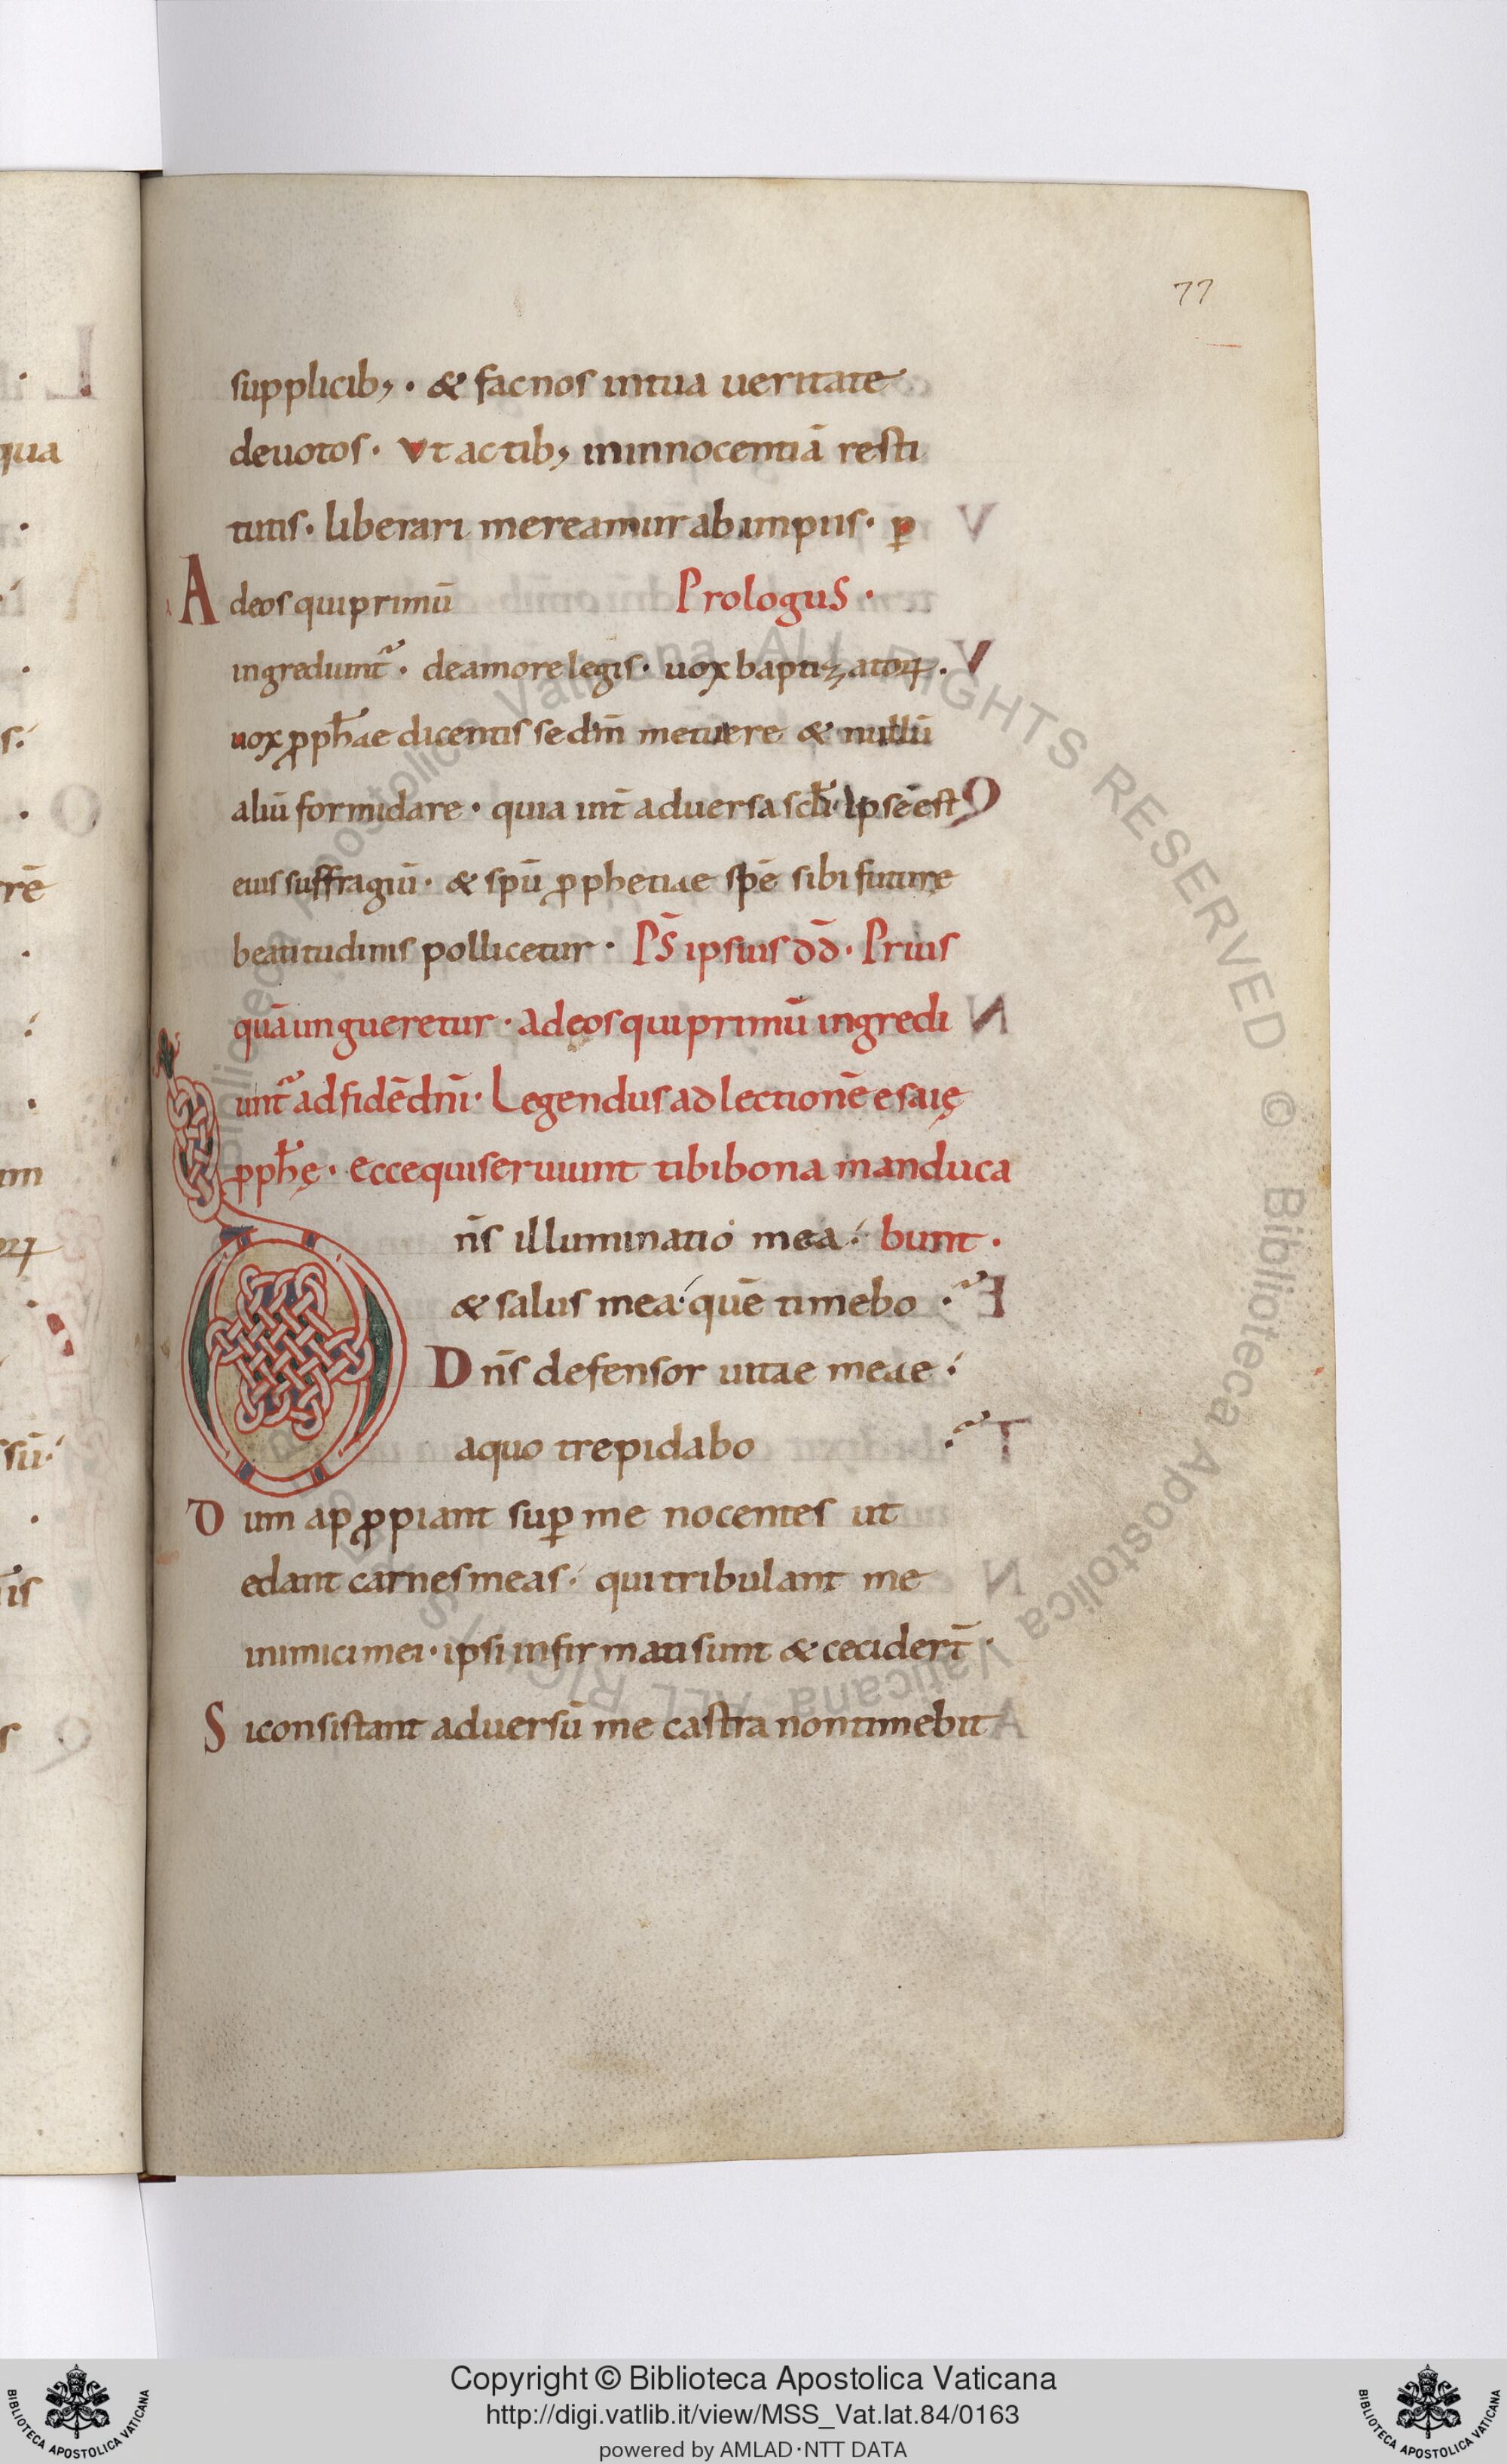 77
supplicib; · & fac nos in tua ueritate
deuotos · Vt actib; in innocentiā resti
tutis · liberari mereamur ab impiis · ꝑ
Ad eos qui primū Prologus ·
ingrediunt᷑ · de amore legis · uox baptizatoꝝ ·
uox ꝓph̄ae dicentis se dm̄ metuere & nullū
aliū formidare · quia int̄ aduersa scl̄i · ipse ē est
eius suffragiū · & spū ꝓphetiae spē sibi futurę
beatitudinis pollicetur · PS̄ ipsius dd̄ · Prius
quā ungueretur · ad eos qui primū ingredi
unt᷑ ad fidē dn̄i · Legendus ad lectionē esaię
ꝓph̄ę · ecce qui seruiunt tibi bona manduca
Dn̄s illuminatio mea · bunt ·
& salus mea · quē timebo
Dn̄s defensor uitae meae ·
a quo trepidabo
Dum apꝓpiant suꝑ me nocentes ut
edant carnes meas · qui tribulant me
inimici mei · ipsi infirmati sunt & cecidert̄ ·
Si consistant aduersū me castra non timebit
Copyright © Biblioteca Apostolica Vaticana
http://digi.vatlib.it/view/MSS_Vat.lat.84/0163
powered by AMLAD·NTT DATA
BIBLIOTECA APOSTOLICA VATICANA
BIBLIOTECA APOSTOLICA VATICANA